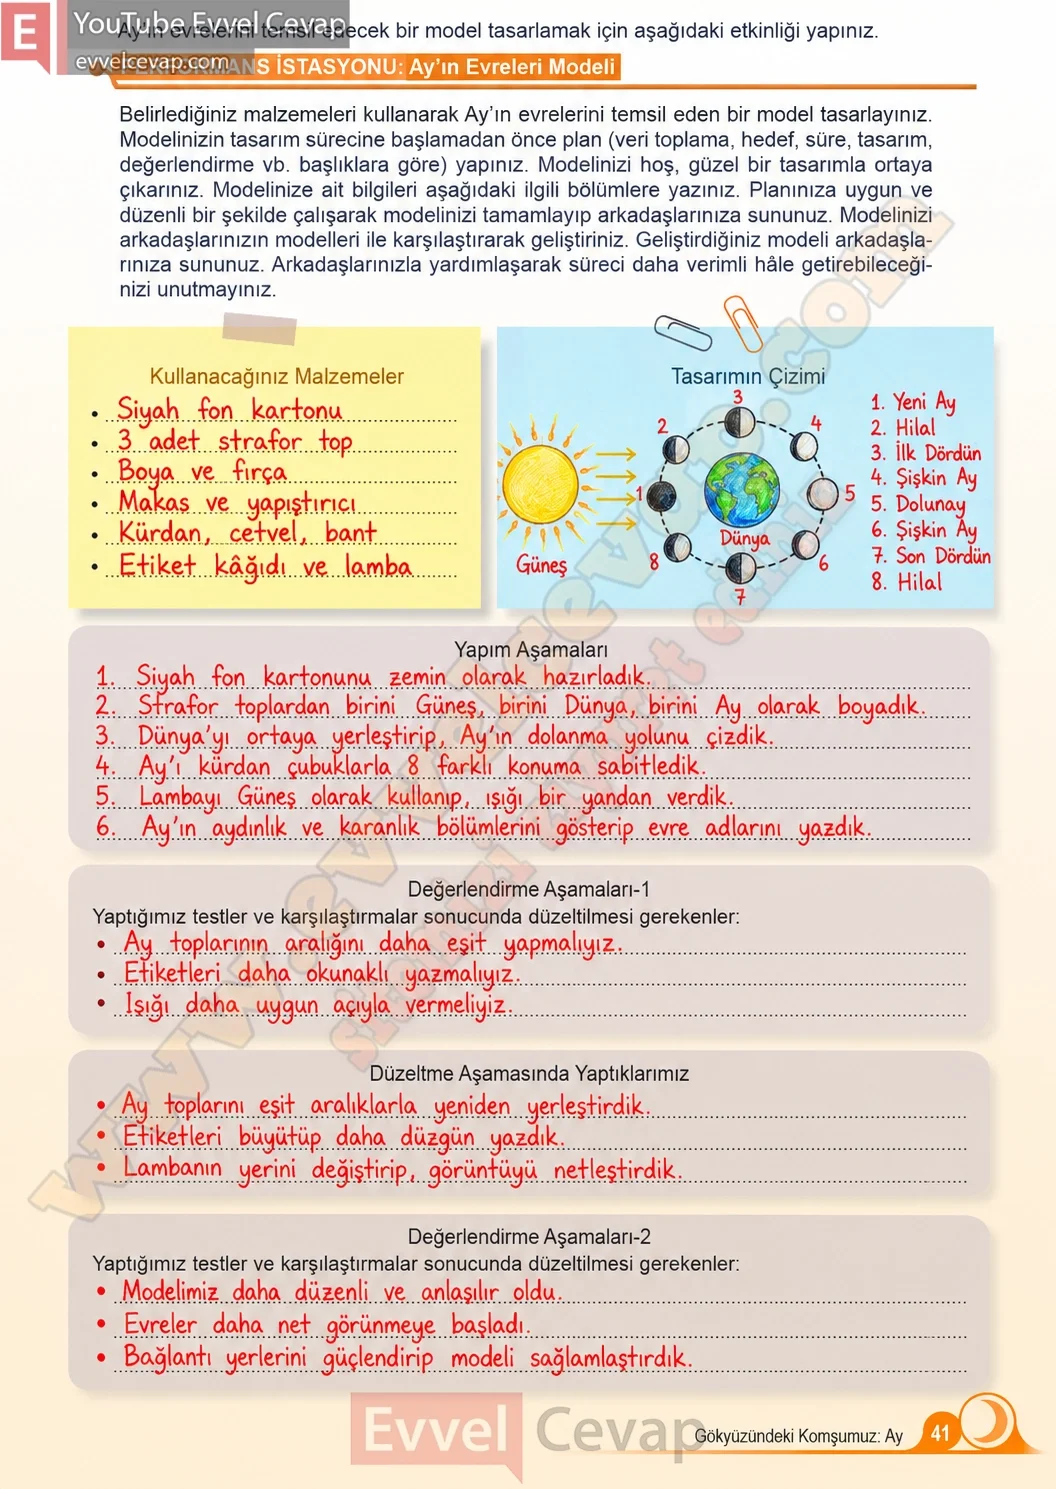 YouTube Evvel Cevap
evvelcevap.com
E
Ay'ın evrelerini temsil edecek bir model tasarlamak için aşağıdaki etkinliği yapınız.
PERFORMANS İSTASYONU: Ay'ın Evreleri Modeli
Belirlediğiniz malzemeleri kullanarak Ay'ın evrelerini temsil eden bir model tasarlayınız.
Modelinizin tasarım sürecine başlamadan önce plan (veri toplama, hedef, süre, tasarım,
değerlendirme vb. başlıklara göre) yapınız. Modelinizi hoş, güzel bir tasarımla ortaya
çıkarınız. Modelinize ait bilgileri aşağıdaki ilgili bölümlere yazınız. Planınıza uygun ve
düzenli bir şekilde çalışarak modelinizi tamamlayıp arkadaşlarınıza sununuz. Modelinizi
arkadaşlarınızın modelleri ile karşılaştırarak geliştiriniz. Geliştirdiğiniz modeli arkadaşla-
rınıza sununuz. Arkadaşlarınızla yardımlaşarak süreci daha verimli hâle getirebileceği-
nizi unutmayınız.
Kullanacağınız Malzemeler
• Siyah fon kartonu
• 3 adet strafor top
• Boya ve fırça
• Makas ve yapıştırıcı
• Kürdan, cetvel, bant
• Etiket kâğıdı ve lamba
Tasarımın Çizimi
1
2
3
4
5
6
7
8
Güneş
Dünya
1. Yeni Ay
2. Hilal
3. İlk Dördün
4. Şişkin Ay
5. Dolunay
6. Şişkin Ay
7. Son Dördün
8. Hilal
Yapım Aşamaları
1. Siyah fon kartonunu zemin olarak hazırladık.
2. Strafor toplardan birini Güneş, birini Dünya, birini Ay olarak boyadık.
3. Dünya'yı ortaya yerleştirip, Ay'ın dolanma yolunu çizdik.
4. Ay'ı kürdan çubuklarla 8 farklı konuma sabitledik.
5. Lambayı Güneş olarak kullanıp, ışığı bir yandan verdik.
6. Ay'ın aydınlık ve karanlık bölümlerini gösterip evre adlarını yazdık.
Değerlendirme Aşamaları-1
Yaptığımız testler ve karşılaştırmalar sonucunda düzeltilmesi gerekenler:
• Ay toplarının aralığını daha eşit yapmalıyız.
• Etiketleri daha okunaklı yazmalıyız.
• Işığı daha uygun açıyla vermeliyiz.
Düzeltme Aşamasında Yaptıklarımız
• Ay toplarını eşit aralıklarla yeniden yerleştirdik.
• Etiketleri büyütüp daha düzgün yazdık.
• Lambanın yerini değiştirip, görüntüyü netleştirdik.
Değerlendirme Aşamaları-2
Yaptığımız testler ve karşılaştırmalar sonucunda düzeltilmesi gerekenler:
• Modelimiz daha düzenli ve anlaşılır oldu.
• Evreler daha net görünmeye başladı.
• Bağlantı yerlerini güçlendirip modeli sağlamlaştırdık.
Evvel Cevap
Gökyüzündeki Komşumuz: Ay
41
www.evvelcevap.com
sitemizi ziyaret ediniz